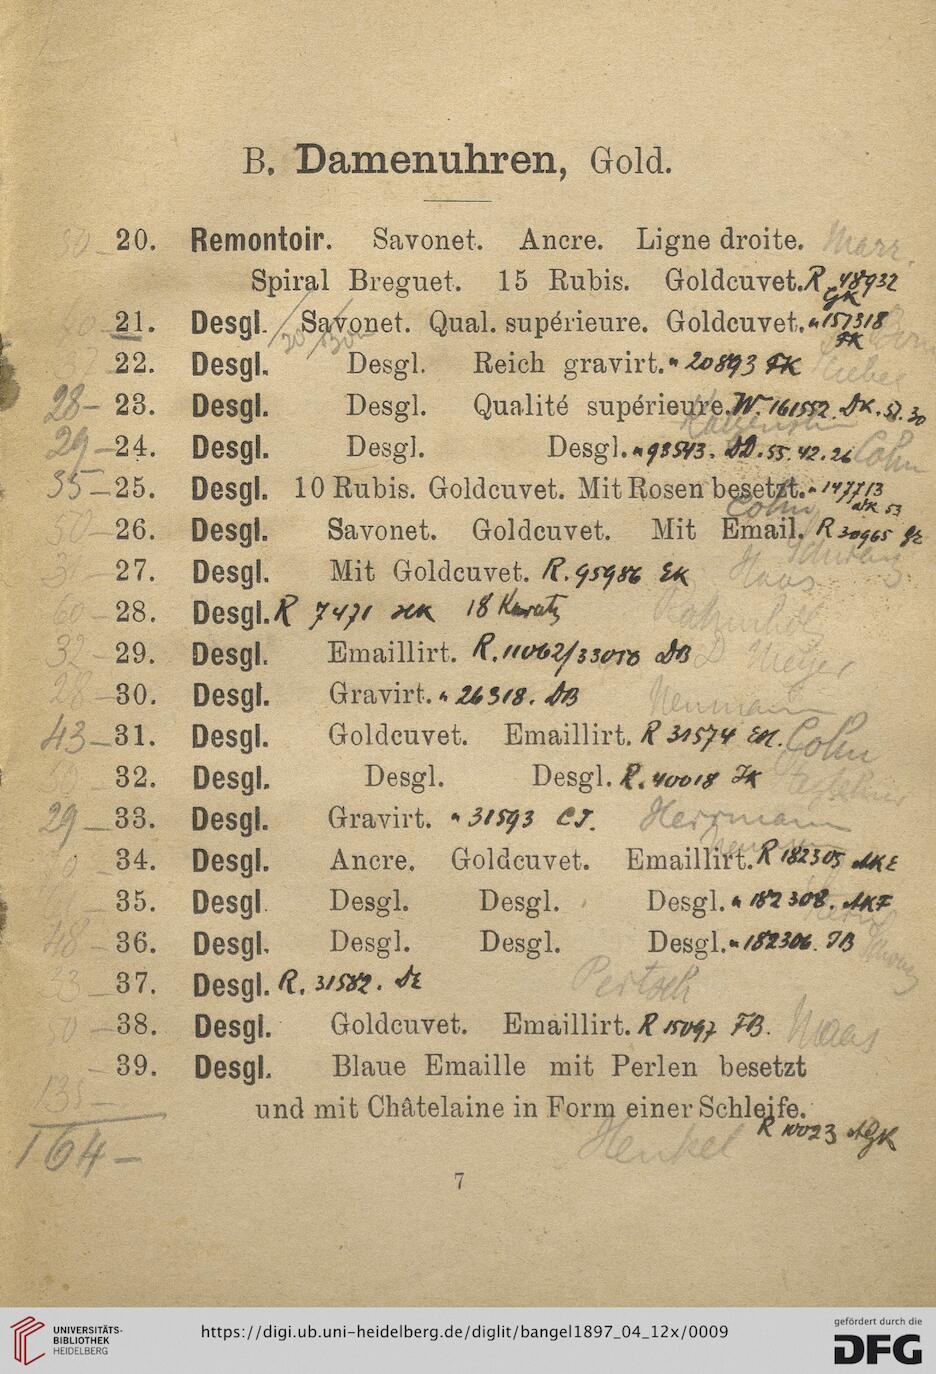 B. Damenuhren, Gold.
20. Remontoir. Savonet. Ancre. Ligne droite. Marx.
Spiral Breguet. 15 Rubis. Goldcuvet. R 48932
GK
21. Desgl. Savonet. Qual. supérieure. Goldcuvet. " 157318
FK
22. Desgl. Desgl. Reich gravirt. " 20893 FK
28- 23. Desgl. Desgl. Qualité supérieure. W. 161552. DK. 57. 30
29 - 24. Desgl. Desgl. Desgl. " 98543. DD. 55. 42. 26 Cohn
35 - 25. Desgl. 10 Rubis. Goldcuvet. Mit Rosen besetzt. " 147713
Cohn 53
26. Desgl. Savonet. Goldcuvet. Mit Email. R 30965
27. Desgl. Mit Goldcuvet. R. 95986 EK Haas
60 - 28. Desgl. R 7471 18 Karatz
32 - 29. Desgl. Emaillirt. R. 11062/33058 DB D Meyer
28 - 30. Desgl. Gravirt. " 26318. DB Neumann
43 - 31. Desgl. Goldcuvet. Emaillirt. R 31574 Cohn
32. Desgl. Desgl. Desgl. R. 40018 JK
29 - 33. Desgl. Gravirt. " 31593 CJ. Herrmann
34. Desgl. Ancre. Goldcuvet. Emaillirt. R 182305 AKE
35. Desgl. Desgl. Desgl. Desgl. " 182308. AKF
48 - 36. Desgl. Desgl. Desgl. Desgl. " 182306. JB
33 - 37. Desgl. R. 31582. DE Pertsch
38. Desgl. Goldcuvet. Emaillirt. R 15097 FB. Maas
39. Desgl. Blaue Emaille mit Perlen besetzt
135 -
und mit Châtelaine in Form einer Schleife.
164 - Henkel R 10023 AGK
7
UNIVERSITÄTS-
BIBLIOTHEK
HEIDELBERG
https://digi.ub.uni-heidelberg.de/diglit/bangel1897_04_12x/0009
gefördert durch die
DFG